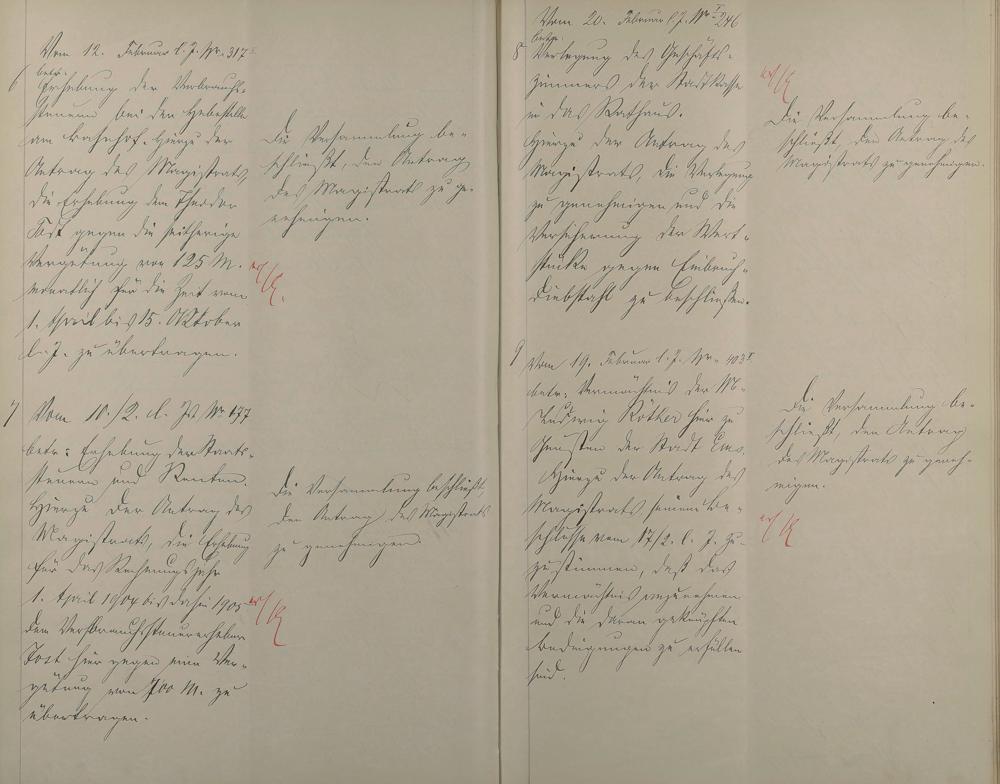 6
Vom 12. Februar l. J. Nr. 317 I
betr.
Erhebung der Verbrauchs-
steuern bei der Hebestelle
am Bahnhof. Hierzu der
Antrag des Magistrats,
die Erhebung dem Theodor
Jost gegen die seitherige
Vergütung von 125 M.
monatlich für die Zeit vom
1. April bis 15. Oktober
l. J. zu übertragen.
Die Versammlung be-
schließt, den Antrag
des Magistrats zu ge-
nehmigen.
7
Vom 10./2. d. Js Nr 177
betr: Erhebung der Staats-
steuern und Renten.
Hierzu der Antrag des
Magistrats, die Erhebung
für das Rechnungsjahr
1. April 1904 bis dahin 1905
dem Verbrauchssteuererheber
Jost hier gegen eine Ver-
gütung von 700 M. zu
übertragen.
Die Versammlung beschließt,
den Antrag des Magistrats
zu genehmigen
8
Vom 20. Februar l. J. Nr I 246
betr.
Verlegung des Geschäfts-
zimmers der Stadtkasse
in das Rathaus.
Hierzu der Antrag des
Magistrats, die Verlegung
zu genehmigen und die
Versicherung der Wert-
stücke gegen Einbruch-
Diebstahl zu beschließen.
Die Versammlung be-
schließt, den Antrag des
Magistrats zu genehmigen.
9
Vom 19. Februar l. J. Nr. 403 I
betr. Vermächtnis der
Ludwig Röther hier zu
Gunsten der Stadt Ems.
Hierzu der Antrag des
Magistrats, seinem Be-
schlusse vom 17/2. l. J. zu-
zustimmen, daß das
Vermächtnis anzunehmen
und die daran geknüpften
Bedingungen zu erfüllen
sind.
Die Versammlung be-
schließt, den Antrag
des Magistrats zu geneh-
migen.